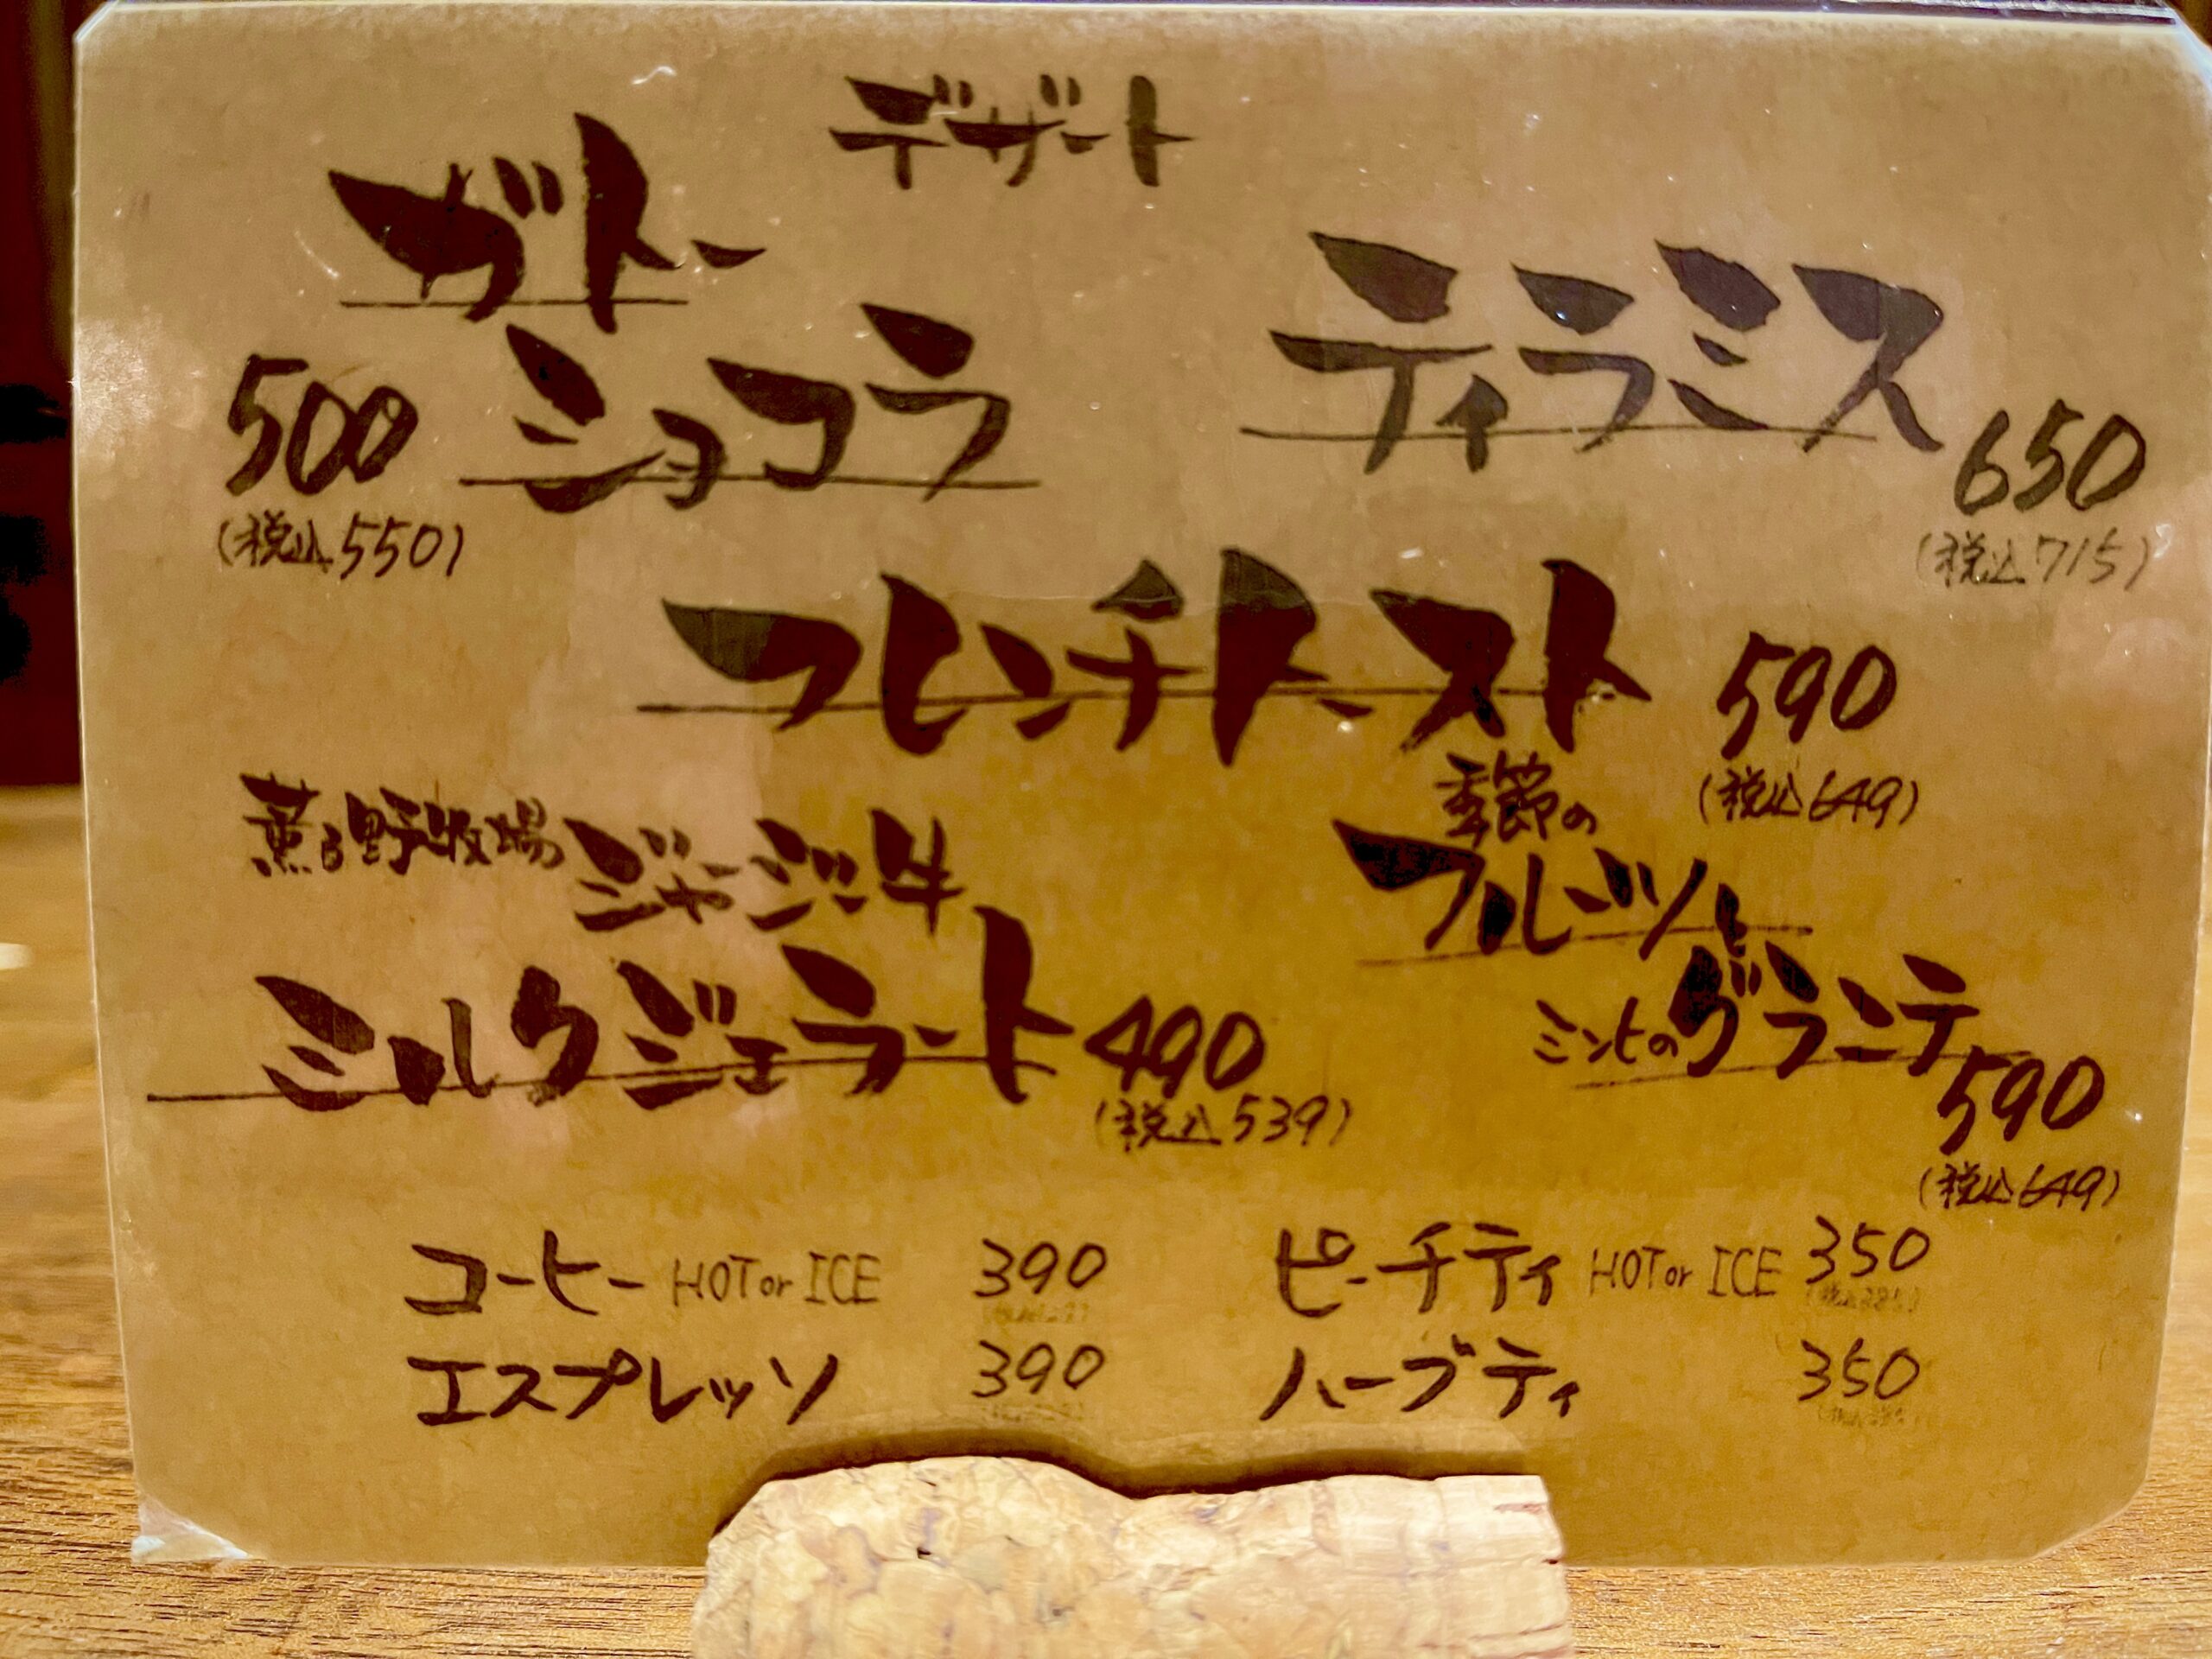 デザート
ガトー
ショコラ
500
(税込550)
ティラミス
650
(税込715)
フレンチトースト
590
(税込649)
薫る野牧場 ジャージー牛
ミルクジェラート 490
(税込539)
季節の
フルーツと
ミントのグラニテ
590
(税込649)
コーヒー HOT or ICE 390
エスプレッソ 390
ピーチティ HOT or ICE 350
ハーブティ 350